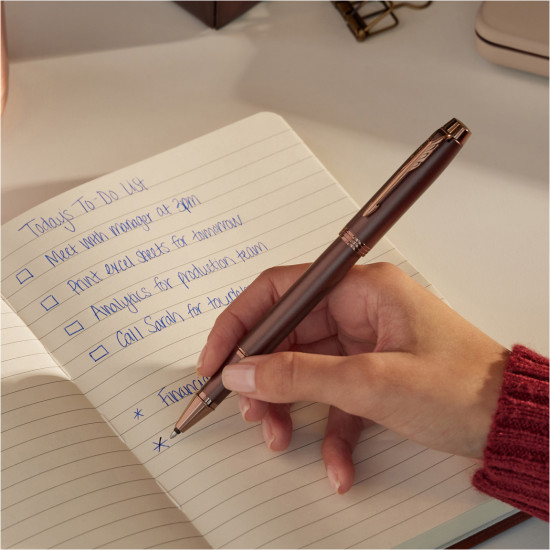 Todays To-Do List
☐ Meet with manager at 3pm
☐ Print excel sheets for tomorrow
☐ Analytics for production team
☐ Call Sarah for
* 
*